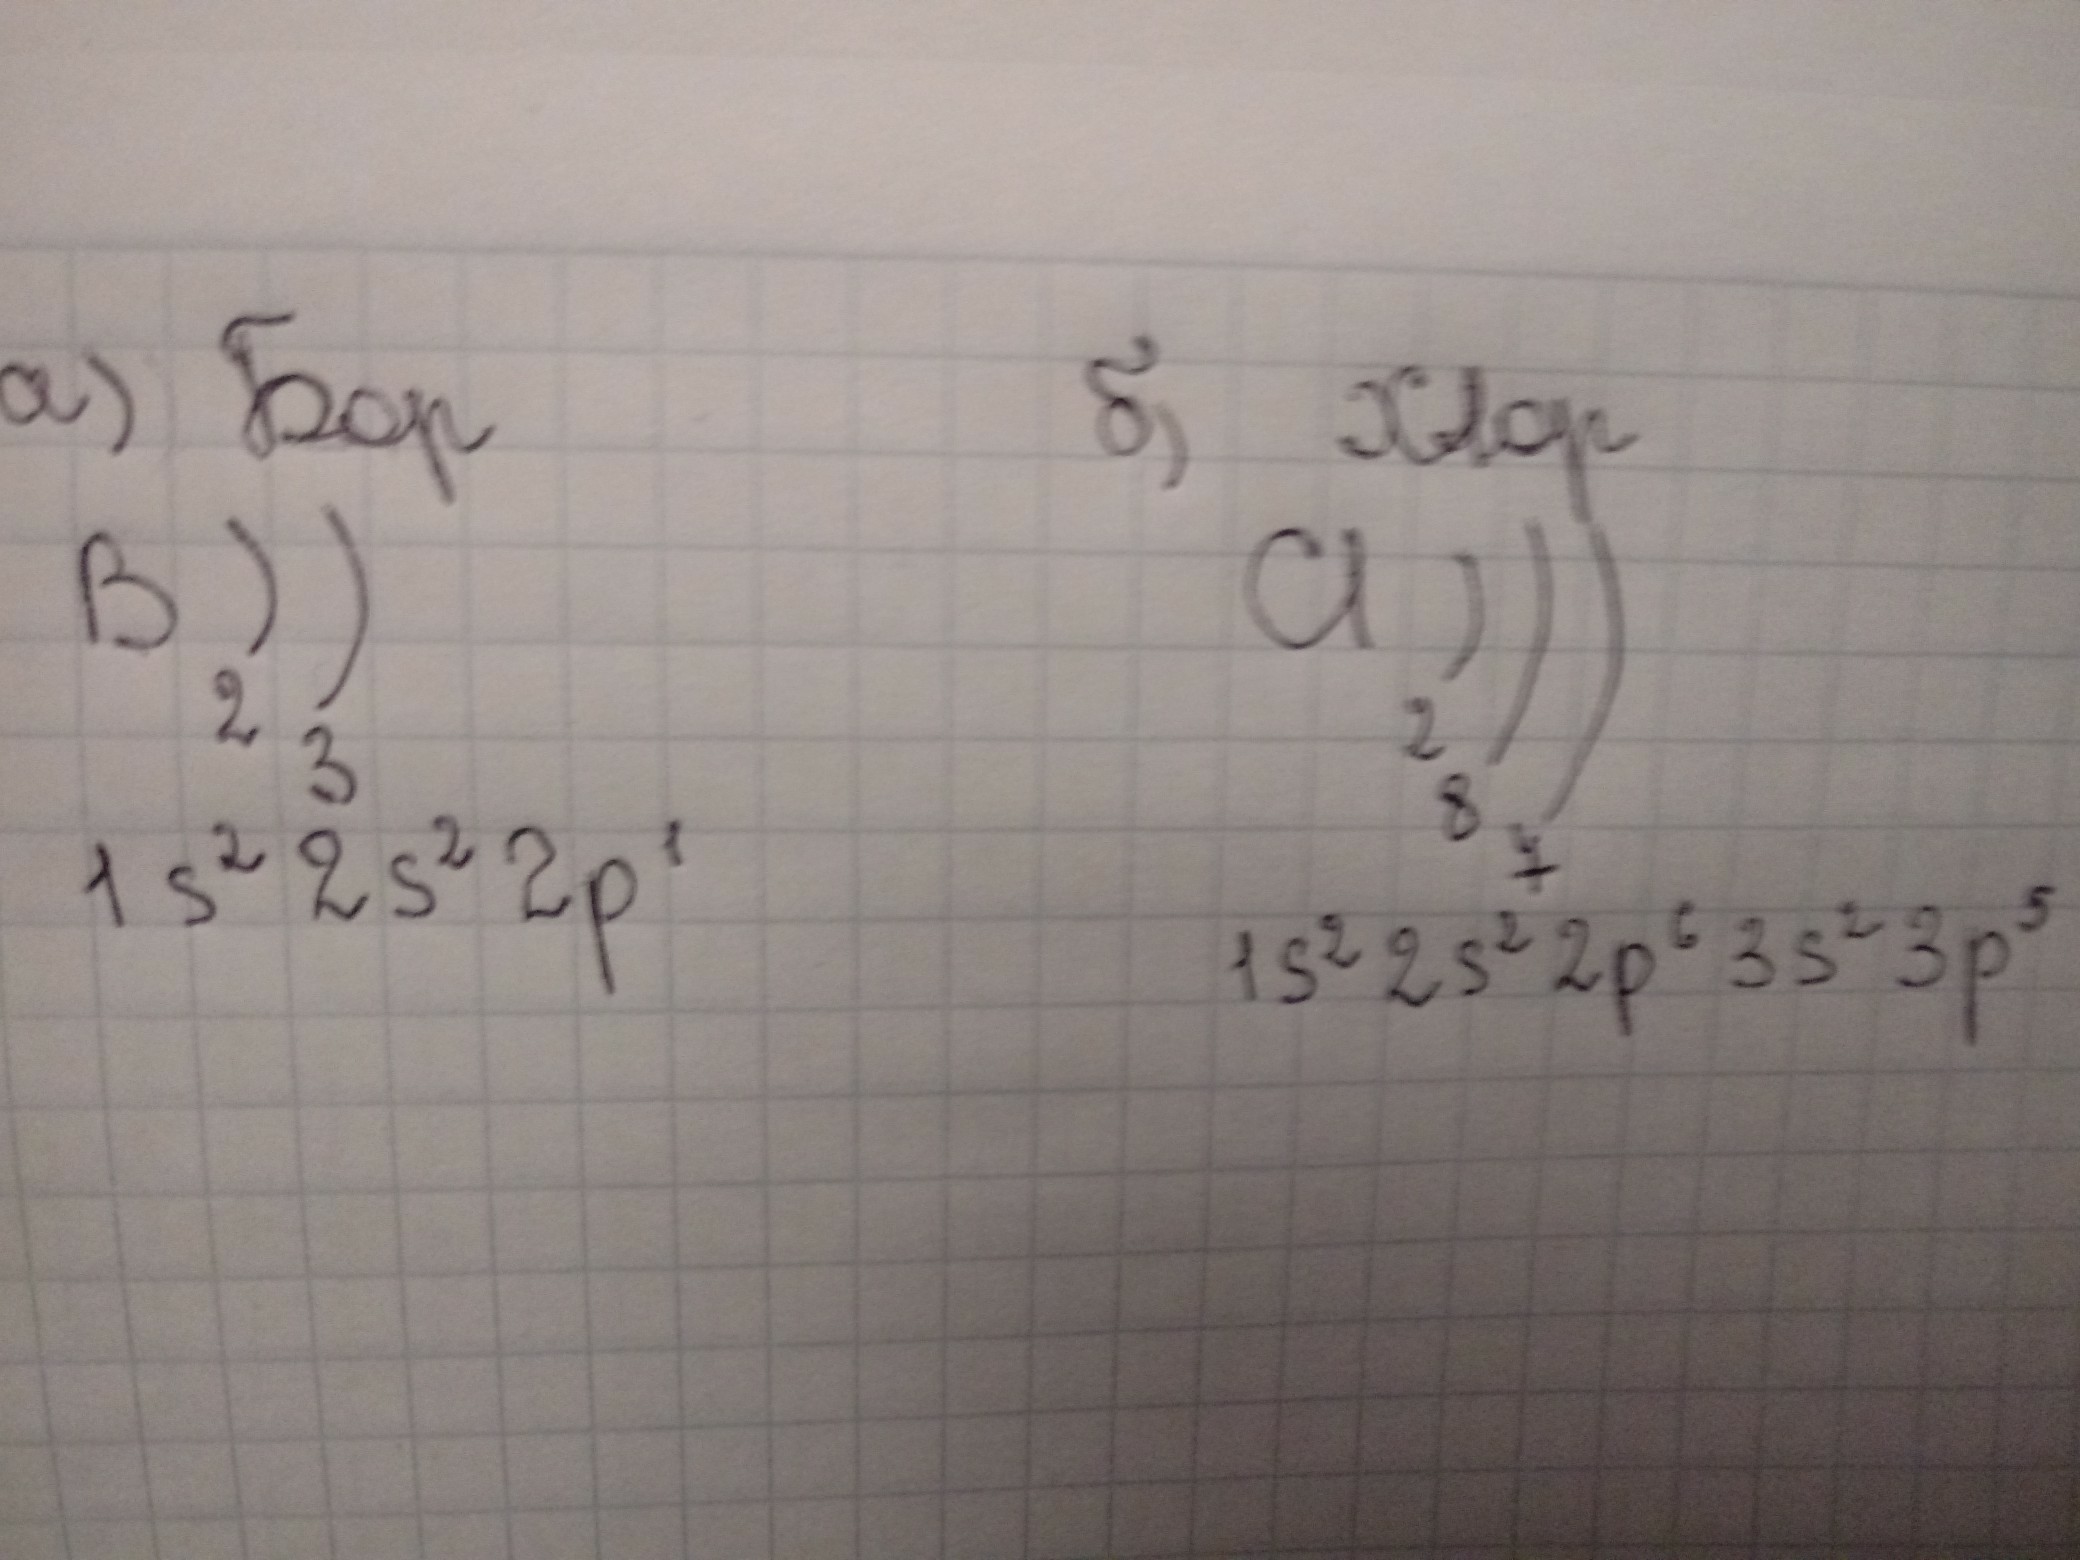 а) Бор
B ) )
2 3
1s² 2s² 2p¹
б) Хлор
Cl ) ) )
2 8 7
1s² 2s² 2p⁶ 3s² 3p⁵